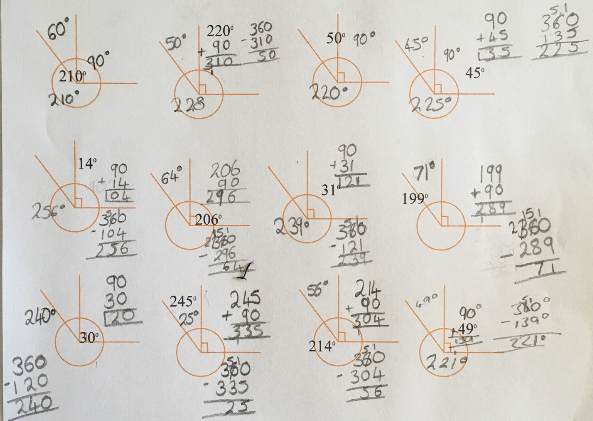 60°
90°
210°
210°
50°
220°
+ 90
310
-360
310
50
228
50°
90°
220°
45°
90°
45°
225°
90
+45
135
360
135
225
14°
256°
90
+ 14
104
360
-104
256
64°
206°
206
90
296
360
- 296
64
31°
239°
90
+31
121
360
- 121
239
71°
199°
199
+ 90
289
360
- 289
71
240°
30°
90
30
120
360
-120
240
245°
25°
245
+ 90
335
360
- 335
25
56°
214°
214
+ 90
304
360
- 304
56
49°
90°
49°
139
221°
360°
-139°
221°